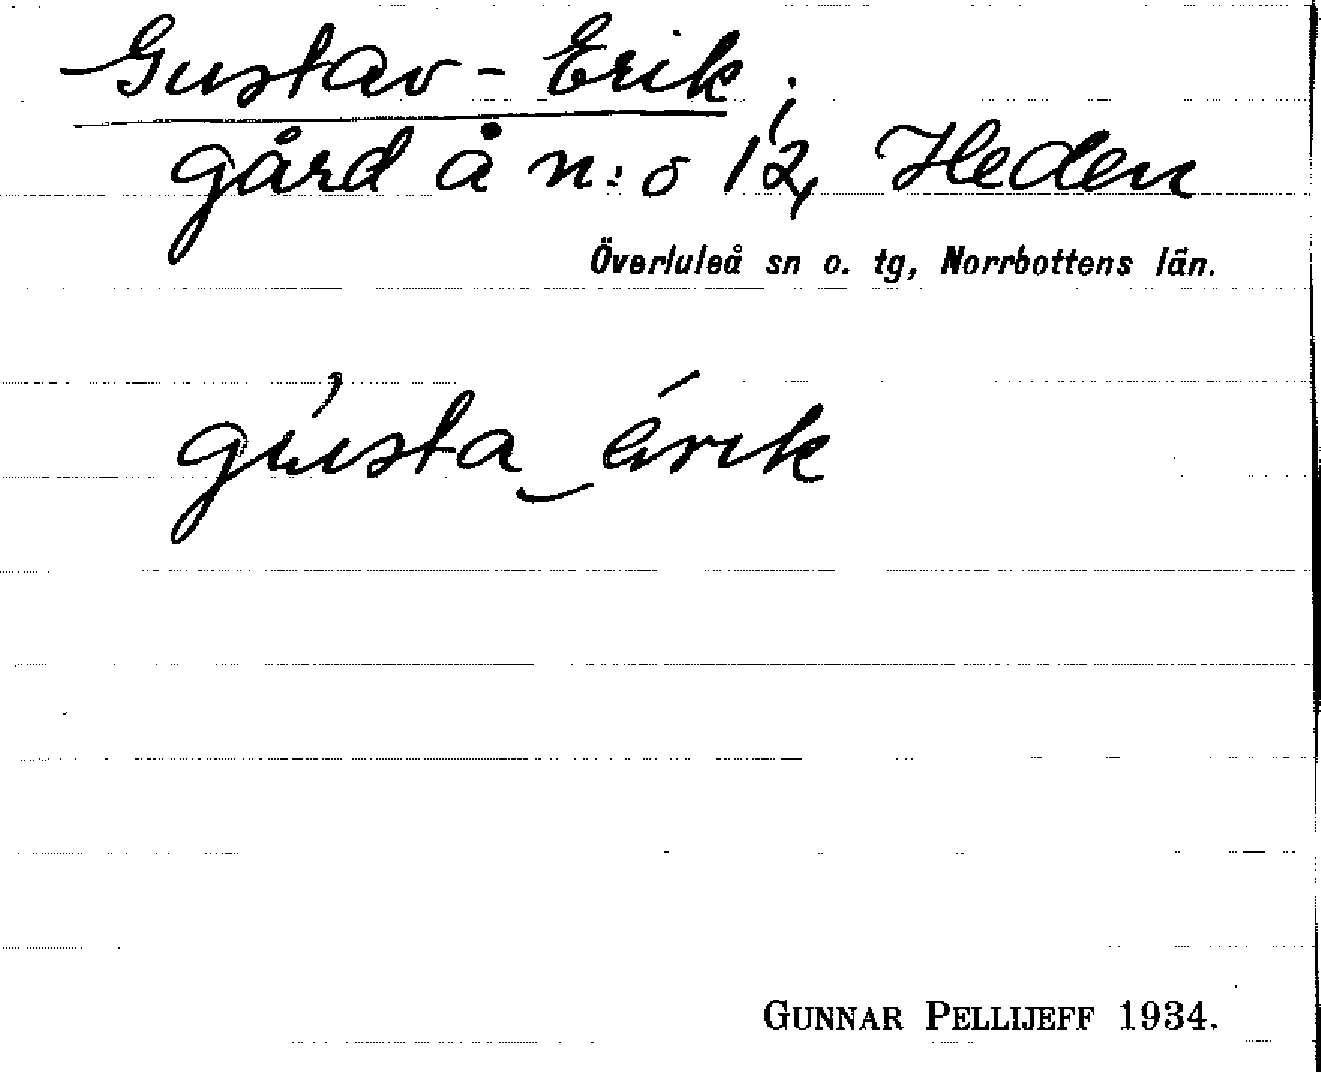 Gustav-Erik;
gård å n:o 12, Heden
Överluleå sn o. tg, Norrbottens län.
gústa‿érik
GUNNAR PELLIJEFF 1934.